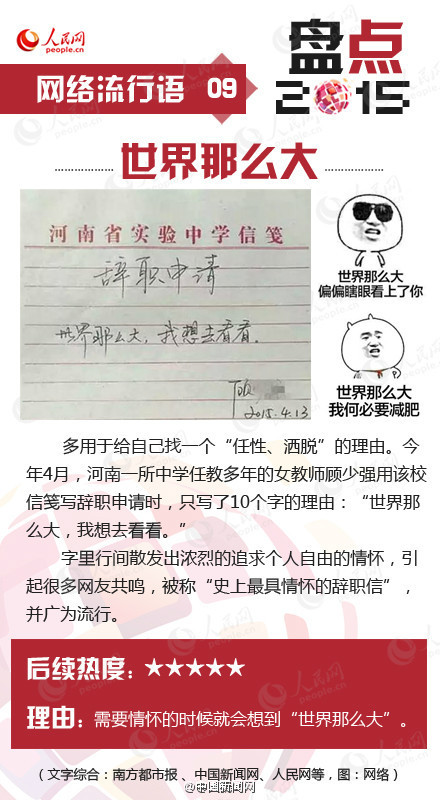 人民网
people.cn
盘点
2015
网络流行语 09
世界那么大
河南省实验中学信笺
辞职申请
世界那么大，我想去看看。
顾
2015.4.13
世界那么大
偏偏瞎眼看上了你
世界那么大
我何必要减肥
多用于给自己找一个“任性、洒脱”的理由。今
年4月，河南一所中学任教多年的女教师顾少强用该校
信笺写辞职申请时，只写了10个字的理由：“世界那
么大，我想去看看。”
字里行间散发出浓烈的追求个人自由的情怀，引
起很多网友共鸣，被称“史上最具情怀的辞职信”，
并广为流行。
后续热度：★★★★★
理由：需要情怀的时候就会想到“世界那么大”。
（文字综合：南方都市报、中国新闻网、人民网等，图：网络）
@中国新闻网